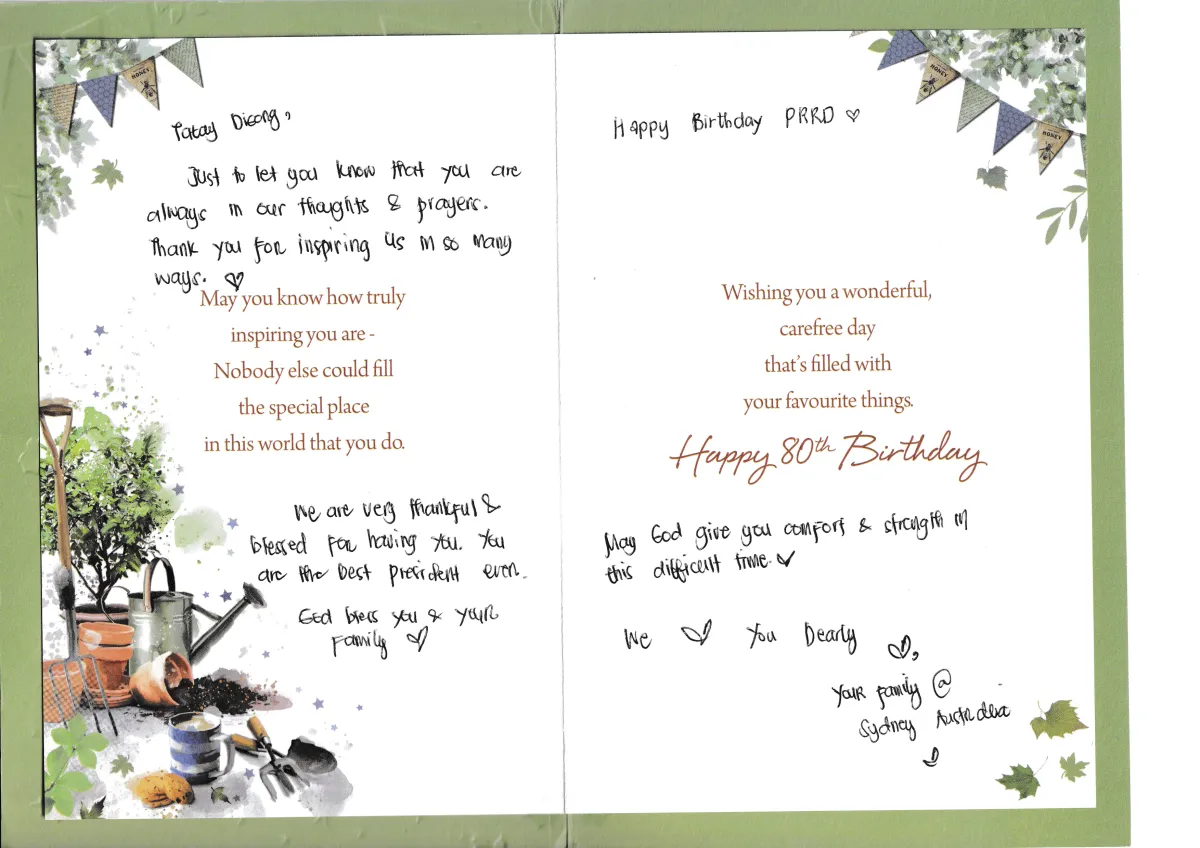 HONEY
Tatay Digong,
Just to let you know that you are
always in our thoughts & prayers.
Thank you for inspiring us in so many
ways. ♡
May you know how truly
inspiring you are -
Nobody else could fill
the special place
in this world that you do.
We are very thankful &
blessed for having you. You
are the best president ever.
God bless you & your
family ♡
HONEY
HONEY
Happy Birthday PRRD ♡
Wishing you a wonderful,
carefree day
that's filled with
your favourite things.
Happy 80th Birthday
May God give you comfort & strength in
this difficult time. ♡
We ♡ you Dearly ♡,
Your family @
Sydney Australia